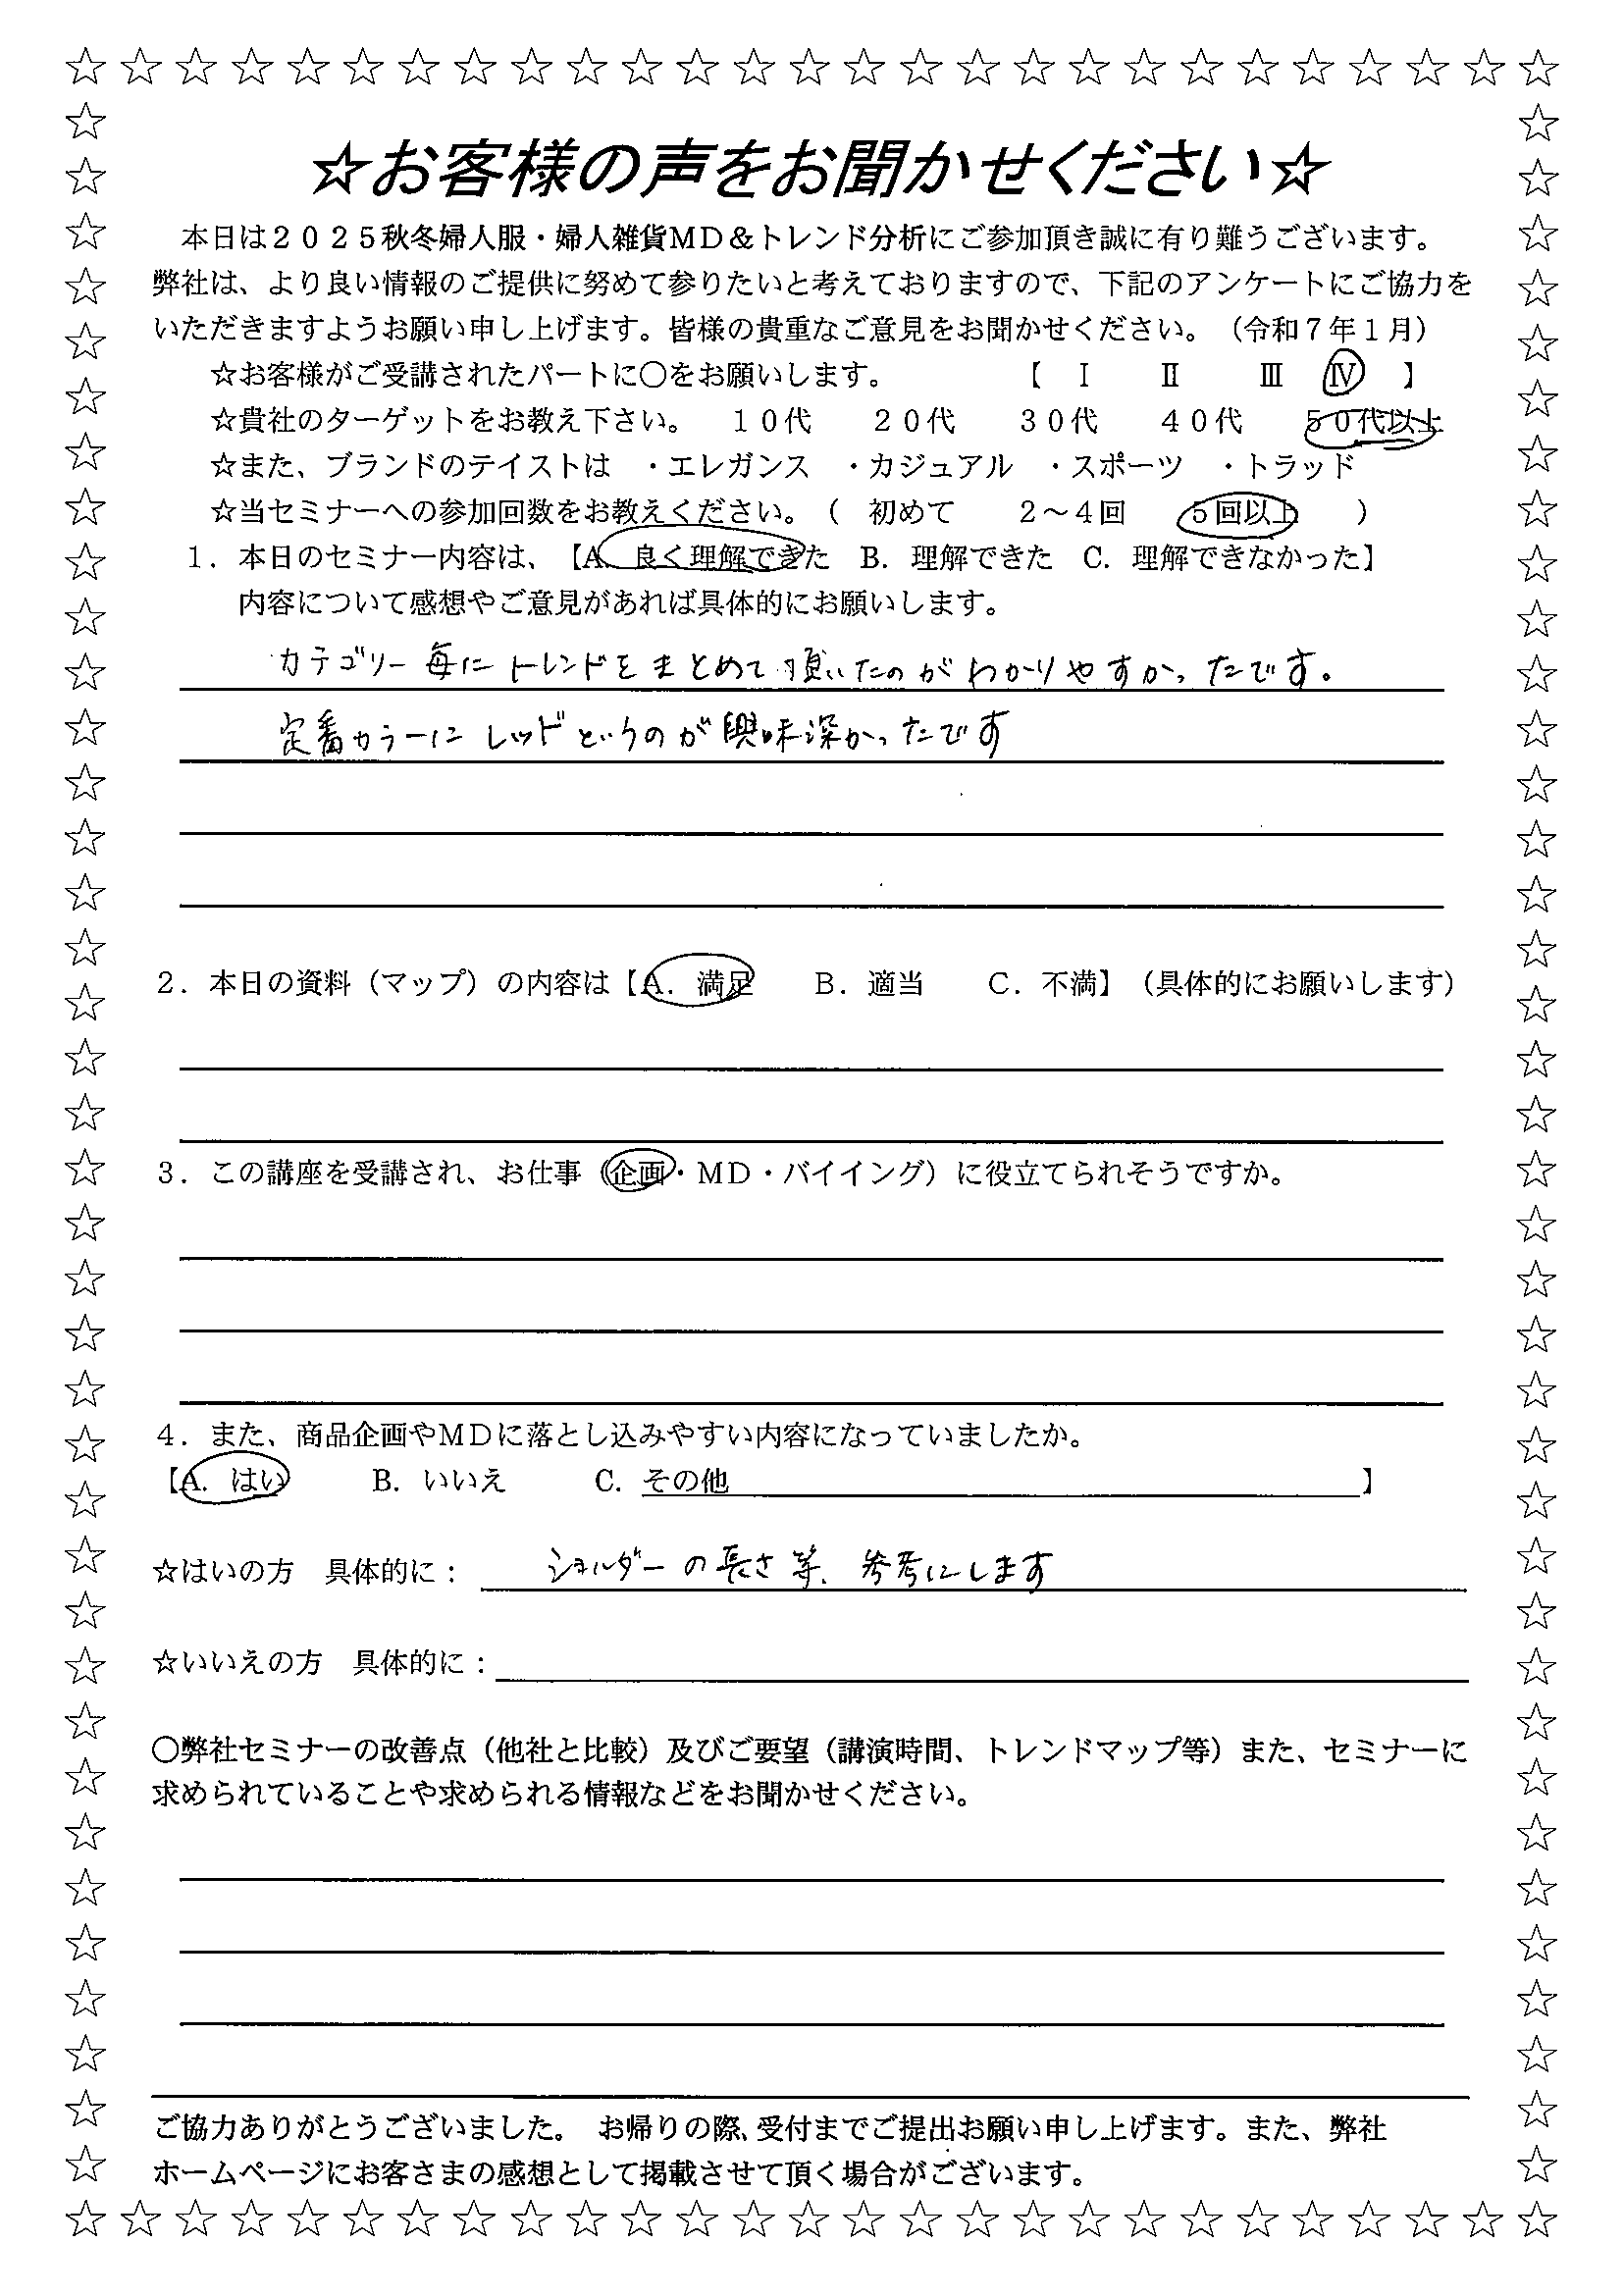 ☆お客様の声をお聞かせください☆
本日は２０２５秋冬婦人服・婦人雑貨ＭＤ＆トレンド分析にご参加頂き誠に有り難うございます。
弊社は、より良い情報のご提供に努めて参りたいと考えておりますので、下記のアンケートにご協力を
いただきますようお願い申し上げます。皆様の貴重なご意見をお聞かせください。（令和７年１月）
☆お客様がご受講されたパートに〇をお願いします。　【　Ⅰ　　Ⅱ　　Ⅲ　Ⅳ　】
☆貴社のターゲットをお教え下さい。　１０代　２０代　３０代　４０代　５０代以上
☆また、ブランドのテイストは　・エレガンス　・カジュアル　・スポーツ　・トラッド
☆当セミナーへの参加回数をお教えください。（　初めて　２～４回　５回以上　）
１．本日のセミナー内容は、【A. 良く理解できた　B. 理解できた　C. 理解できなかった】
内容について感想やご意見があれば具体的にお願いします。
カテゴリー毎にトレンドをまとめて頂いたのがわかりやすかったです。
定番カラーにレッドというのが興味深かったです
２．本日の資料（マップ）の内容は【Ａ．満足　Ｂ．適当　Ｃ．不満】（具体的にお願いします）
３．この講座を受講され、お仕事（企画・ＭＤ・バイイング）に役立てられそうですか。
４．また、商品企画やＭＤに落とし込みやすい内容になっていましたか。
【A. はい　B. いいえ　C. その他　】
☆はいの方　具体的に：　ショルダーの長さ等、参考にします
☆いいえの方　具体的に：
〇弊社セミナーの改善点（他社と比較）及びご要望（講演時間、トレンドマップ等）また、セミナーに
求められていることや求められる情報などをお聞かせください。
ご協力ありがとうございました。　お帰りの際、受付までご提出お願い申し上げます。また、弊社
ホームページにお客さまの感想として掲載させて頂く場合がございます。